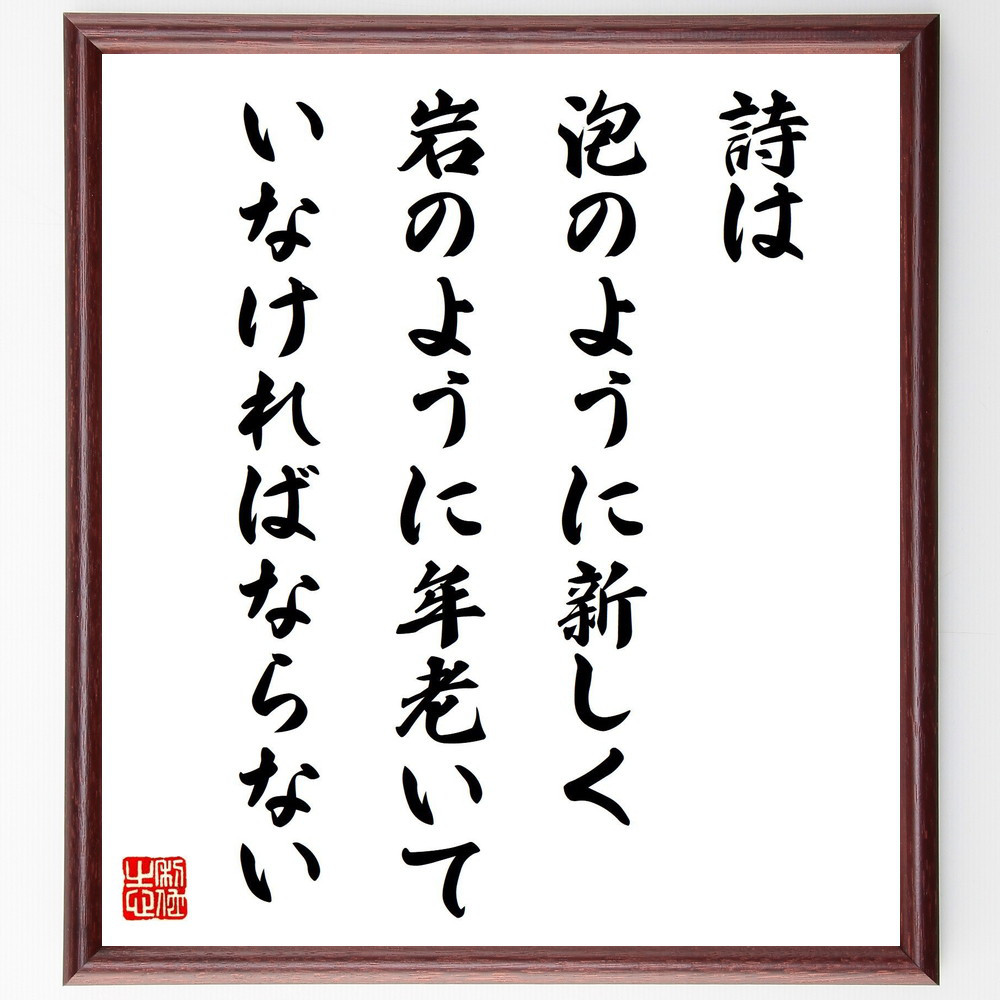 詩は
泡のように新しく
岩のように年老いて
いなければならない